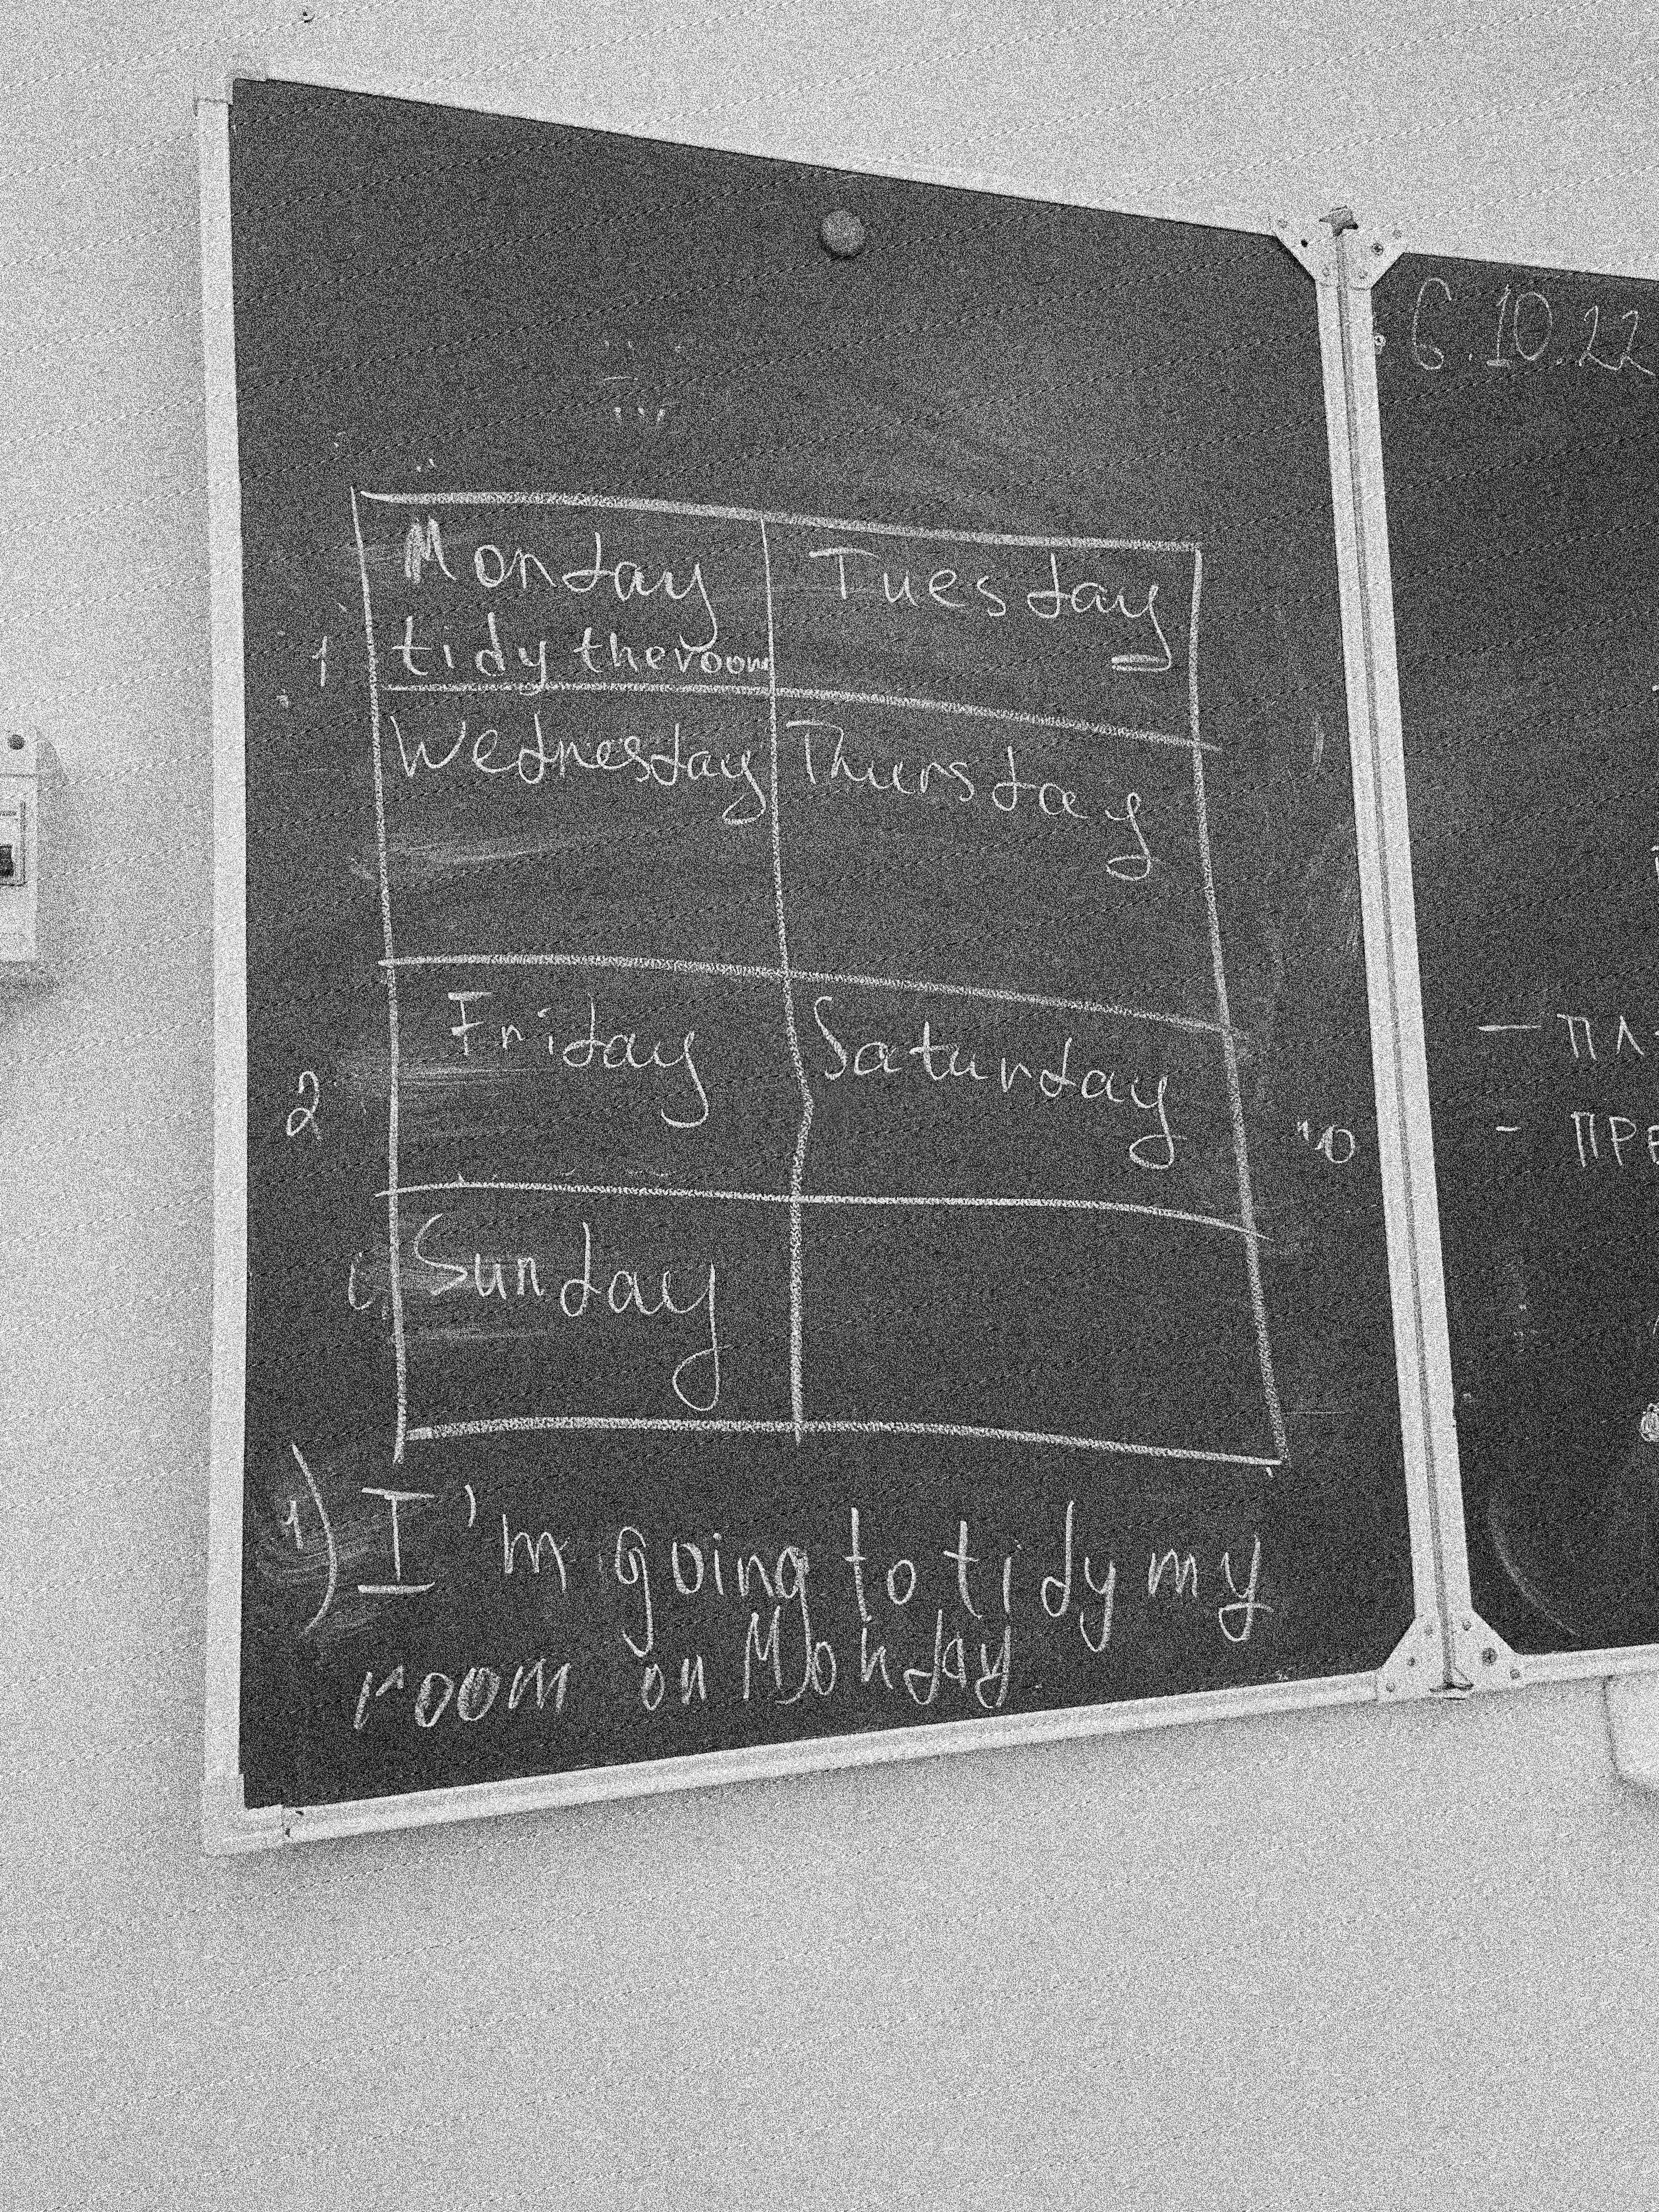 Monday Tuesday
1 tidy the room
Wednesday Thursday
Friday Saturday
2
Sunday
1) I'm going to tidy my
room on Monday
6.10.22